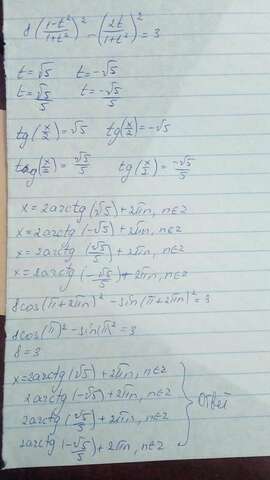 8(1-t²/1+t²)² - (2t/1+t²)² = 3
t=√5 t=-√5
t=√5/5 t=-√5/5
tg(x/2)=√5 tg(x/2)=-√5
tg(x/2)=√5/5 tg(x/2)=-√5/5
x=2arctg(√5)+2πn, n∈z
x=2arctg(-√5)+2πn, n∈z
x=2arctg(√5/5)+2πn, n∈z
x=2arctg(-√5/5)+2πn, n∈z
8cos(π+2πn)²-sin(π+2πn)²=3
8cos(π)²-sin(π)²=3
8=3
x=2arctg(√5)+2πn, n∈z
2arctg(-√5)+2πn, n∈z
2arctg(√5/5)+2πn, n∈z
2arctg(-√5/5)+2πn, n∈z
Ответ